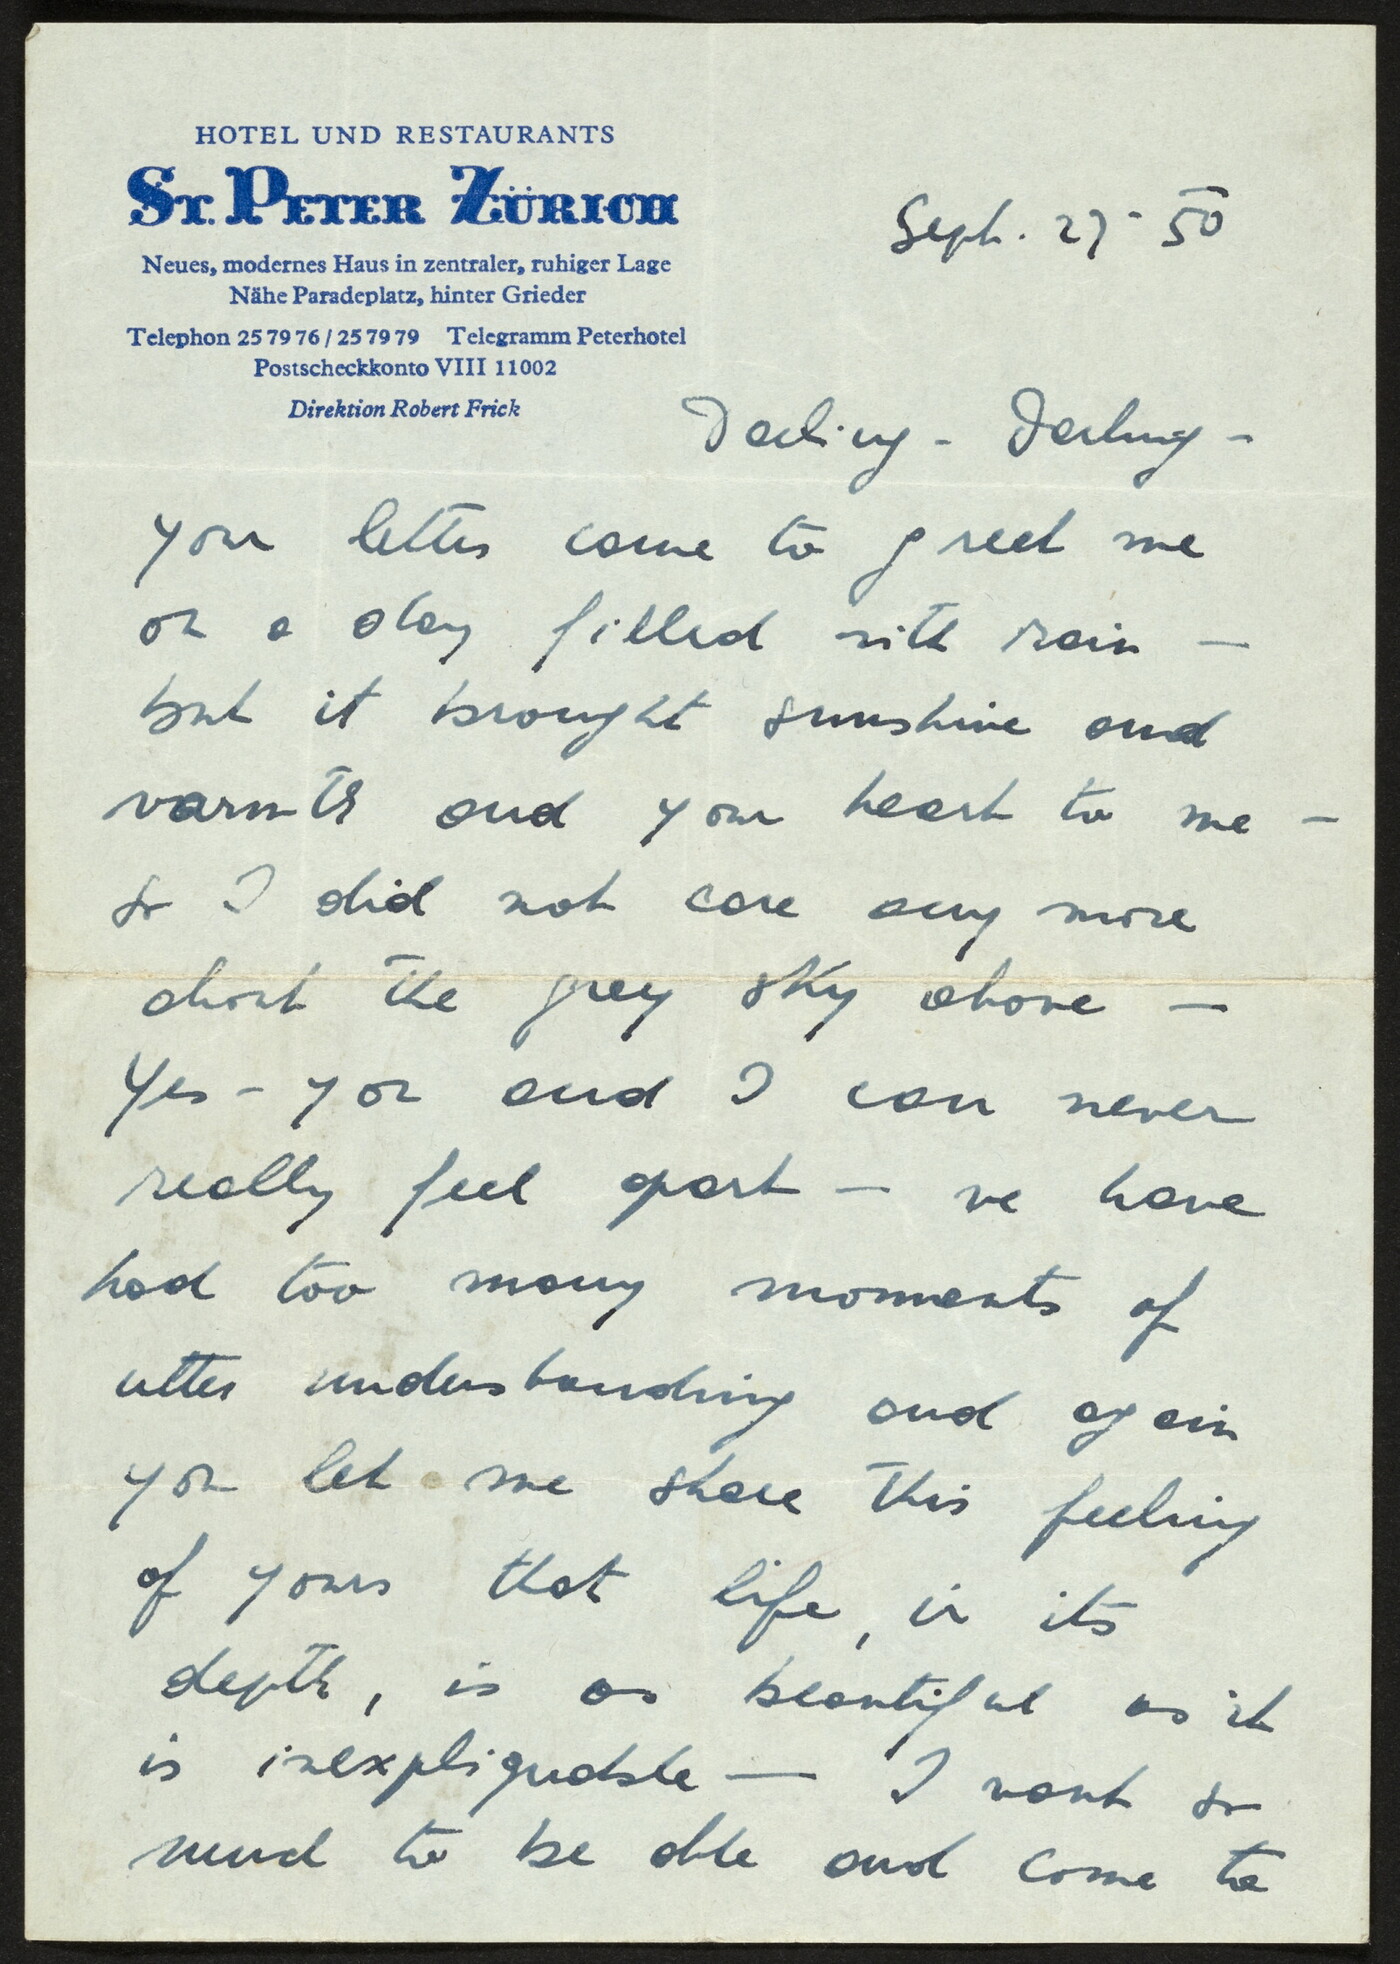 HOTEL UND RESTAURANTS
ST. PETER ZÜRICH
Neues, modernes Haus in zentraler, ruhiger Lage
Nähe Paradeplatz, hinter Grieder
Telephon 25 79 76 / 25 79 79 Telegramm Peterhotel
Postscheckkonto VIII 11002
Direktion Robert Frick
Sept. 27 - 50
Darling - Darling -
your letter came to greet me
on a day filled with rain -
but it brought sunshine and
warmth and your heart to me -
so I did not care any more
about the grey sky above -
Yes - you and I can never
really feel apart - we have
had too many moments of
utter understanding and again
you let me share this feeling
of yours that life, in its
depth, is as beautiful as it
is inexpliquable - I want so
much to be able and come to